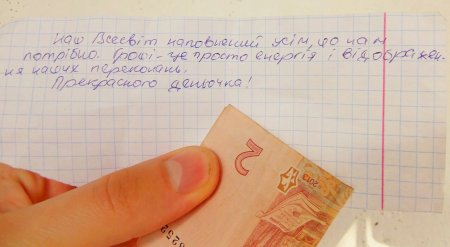 Наш Всесвіт наповнений усім, що нам
потрібно. Гроші - це просто енергія і відображен-
ня наших переконань.
Прекрасного деньочка!
2
2013